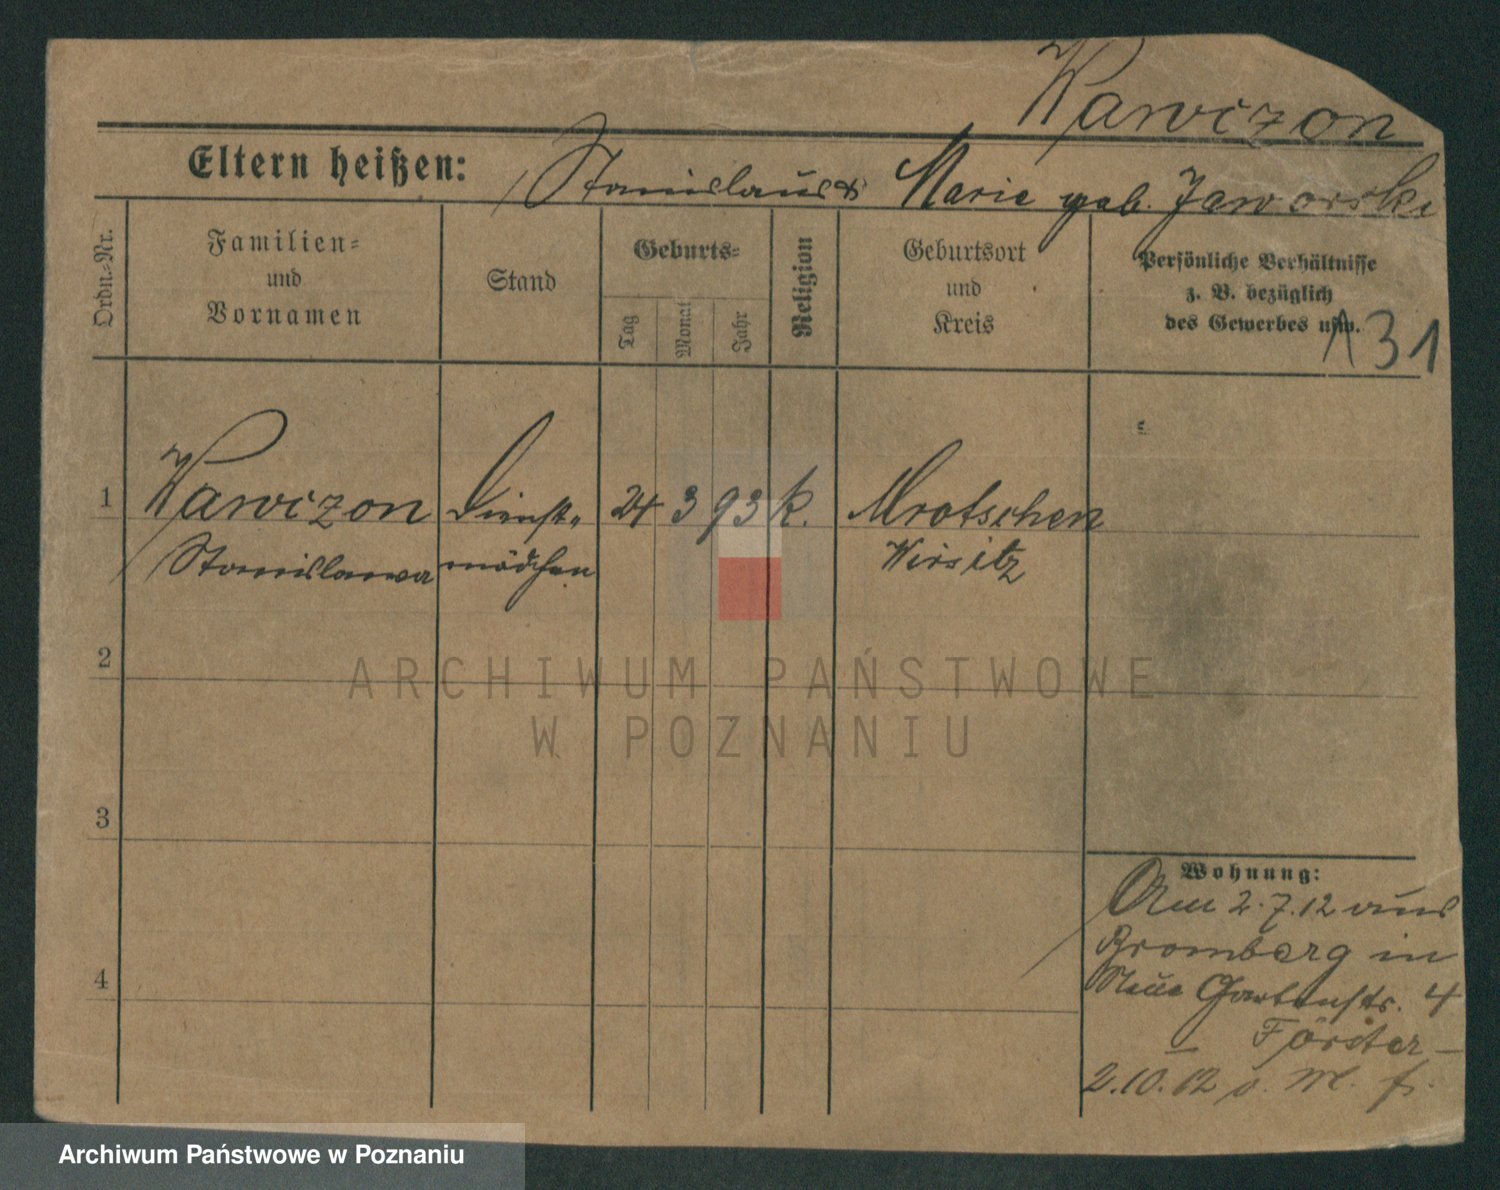 Wawczon
Eltern heißen: Stanislaus & Marie geb. Jaworski
Ordn.=Nr.
Familien=
und
Vornamen
Stand
Geburts=
Tag
Monat
Jahr
Religion
Geburtsort
und
Kreis
Persönliche Verhältnisse
z. B. bezüglich
des Gewerbes usw.
A 31
1 Wawczon Dienst= 24 3 93 k. Mrotschen
Stanislawa mädchen Wirsitz
2
3
4
Wohnung:
Am 2.7.12 aus
Bromberg in
Neue Gartenstr. 4
Förster
2.10.12
ARCHIWUM PAŃSTWOWE
W POZNANIU
Archiwum Państwowe w Poznaniu